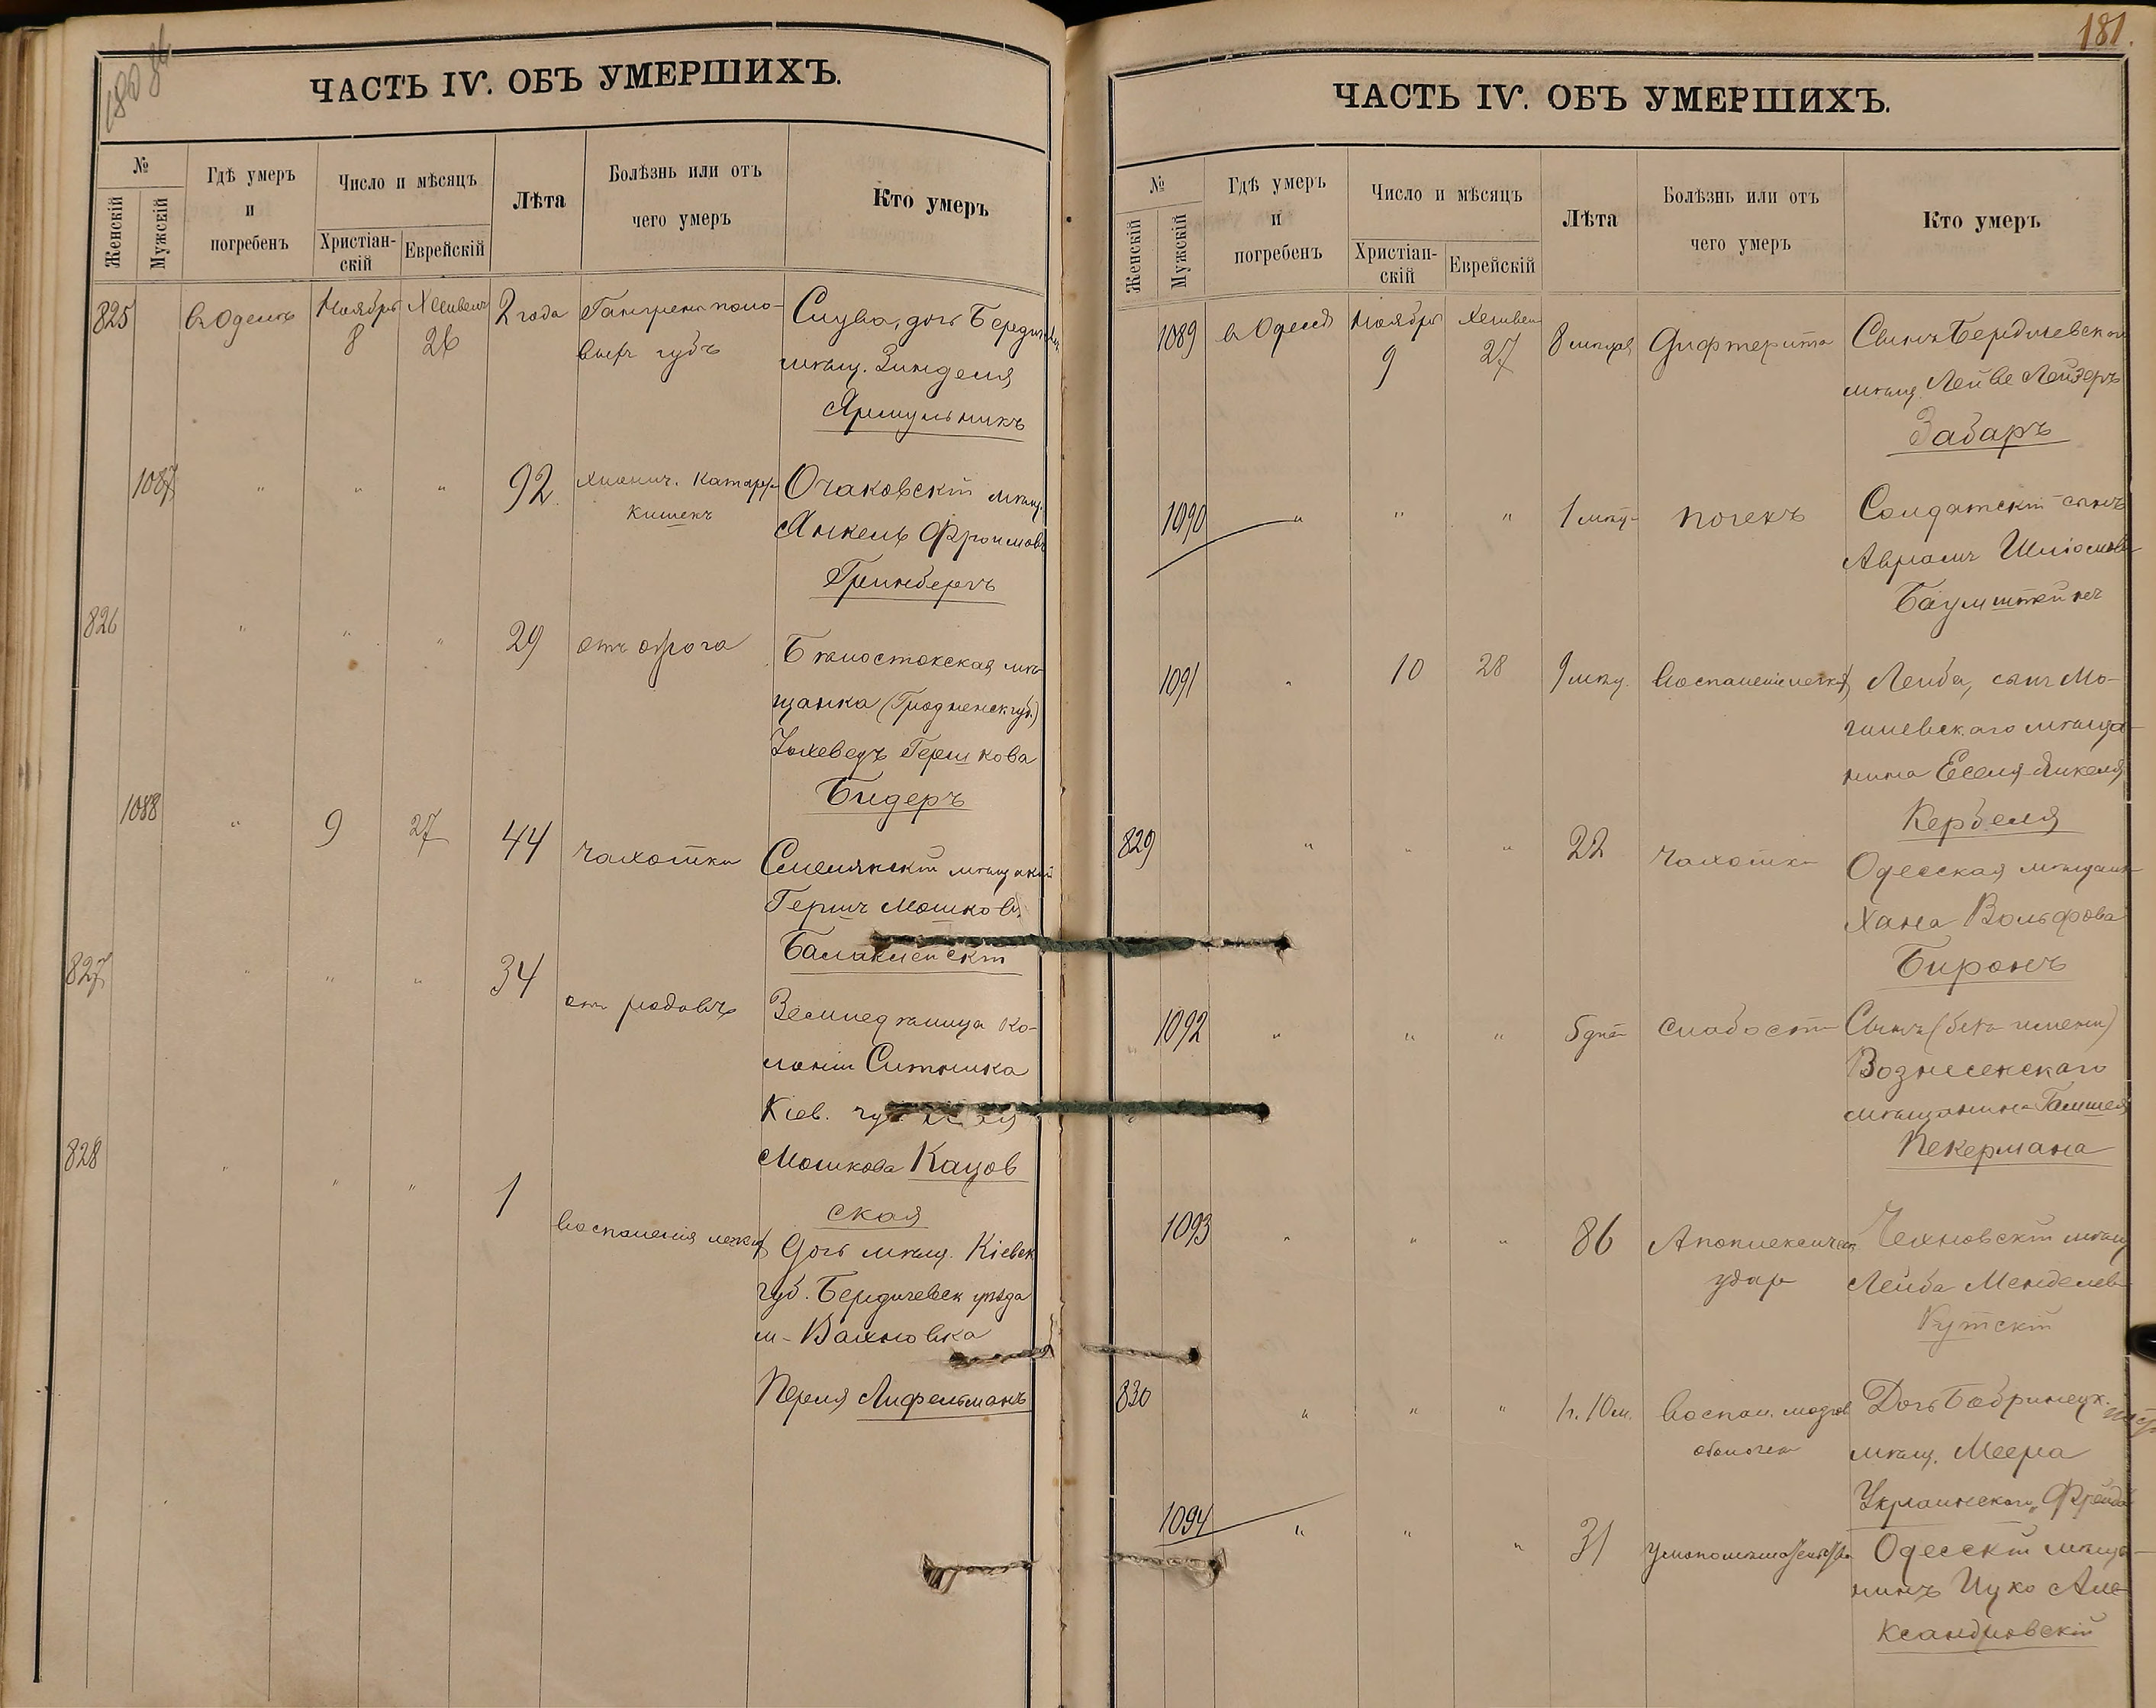 181.
ЧАСТЬ IV. ОБЪ УМЕРШИХЪ.
№
Женскій
Мужскій
Гдѣ умеръ
и
погребенъ
Число и мѣсяцъ
Христіан-
скій
Еврейскій
Лѣта
Болѣзнь или отъ
чего умеръ
Кто умеръ
825
въ Одессѣ
Ноябрь
8
Хешвенъ
26
2 года
Гангрена поло-
выхъ губъ
дочь
мѣщ. Зинделя
Ярмульникъ
1087
"
"
"
92
хронич. Катарр
кишекъ
Очаковскій мѣщ.
Янкель Фроимовъ
Гринбергъ
826
"
"
"
29
Бѣлостокская мѣ-
щанка (Гродненск. губ.)
Іохеведъ Гершкова
Бидеръ
1088
"
9
27
44
чахотки
мѣщ
Гершъ Мошковъ
827
"
"
"
34
отъ родовъ
Земледѣлица Ко-
лоніи Ситника
Кіев. губ.
Мошкова Кацов
ская
828
"
"
"
1
воспаленія легкихъ
Дочь мѣщ. Кіевск
губ. Бердичевск уѣзда
м- Вахновка
Перля Лифельманъ
ЧАСТЬ IV. ОБЪ УМЕРШИХЪ.
№
Женскій
Мужскій
Гдѣ умеръ
и
погребенъ
Число и мѣсяцъ
Христіан-
скій
Еврейскій
Лѣта
Болѣзнь или отъ
чего умеръ
Кто умеръ
1089
въ Одессѣ
Ноябрь
9
Хешвен
27
8 мѣсяц
Дифтерита
Сынъ Бердичевского
мѣщ. Лейзеръ
Забаръ
1090
"
"
"
1 мѣц
почекъ
Солдатскій сынъ
Абрамъ Шліомовъ
Баумштейнъ
1091
"
10
28
9 мѣц.
воспаленіе легких
Лейба, сынъ Мо-
гилевскаго мѣща-
нина Еселя-Янкеля
Кербеля
829
"
"
"
22
Чахотки
Одесская мѣщан
Хана Вольфова
Биронъ
1092
"
"
"
5 дней
слабости
Сынъ (безъ имени)
Вознесенскаго
мѣщанина
Пекермана
1093
"
"
"
86
Апоплексическ
удар
мѣщ
Лейба Менделев
Кутскій
830
"
"
"
1г. 10м.
воспал. мозгов
оболочек
Дочь Бобринецк.
мѣщ. Меера
Украинскаго, Фрейда
1094
"
"
"
31
Умопомѣшательства
Одесскій мѣща-
нинъ Ицко Але-
ксандровскій